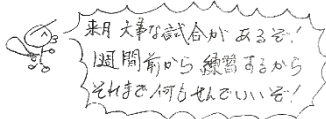 来月 大事な試合が あるぞ!
1週間前から 練習するから
それまで何もせんでいいぞ!